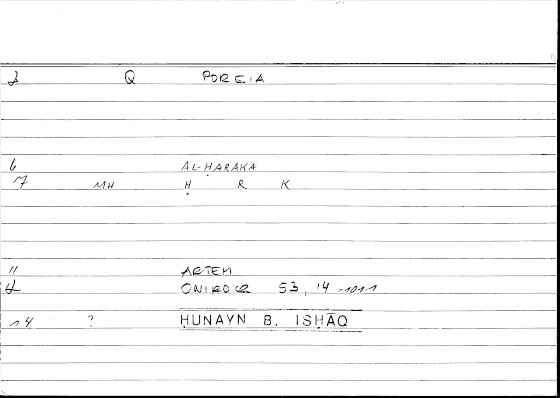 3 Q POREIA
6 AL-ḤARAKA
7 MH Ḥ R K
11 ARTEM
12 ONIROCR 53, 14 -101.1
14 ? ḤUNAYN B. ISḤĀQ